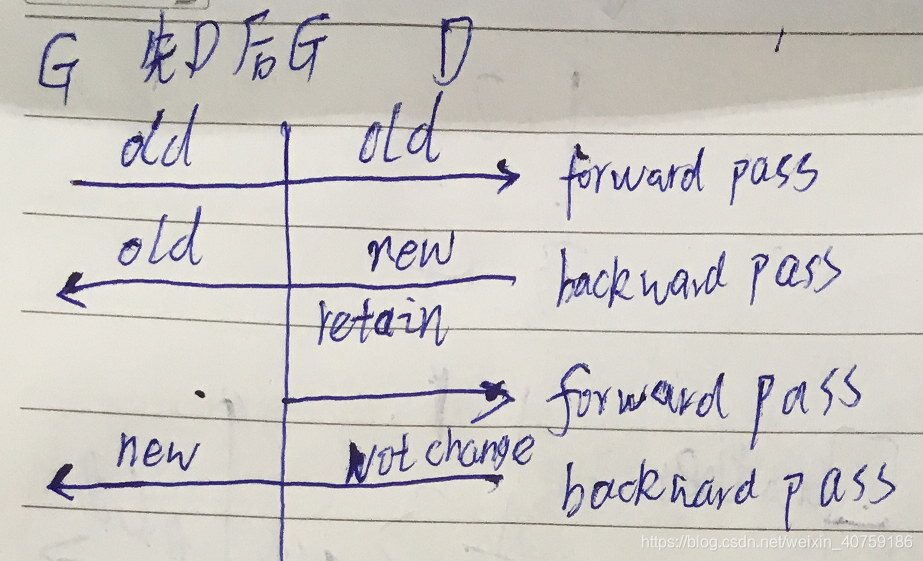 G 先D后G D
old old
forward pass
old new
backward pass
retain
forward pass
new not change
backward pass
https://blog.csdn.net/weixin_40759186